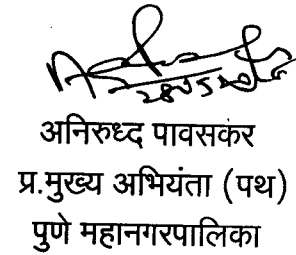 अनिरुध्द पावसकर
प्र.मुख्य अभियंता (पथ)
पुणे महानगरपालिका